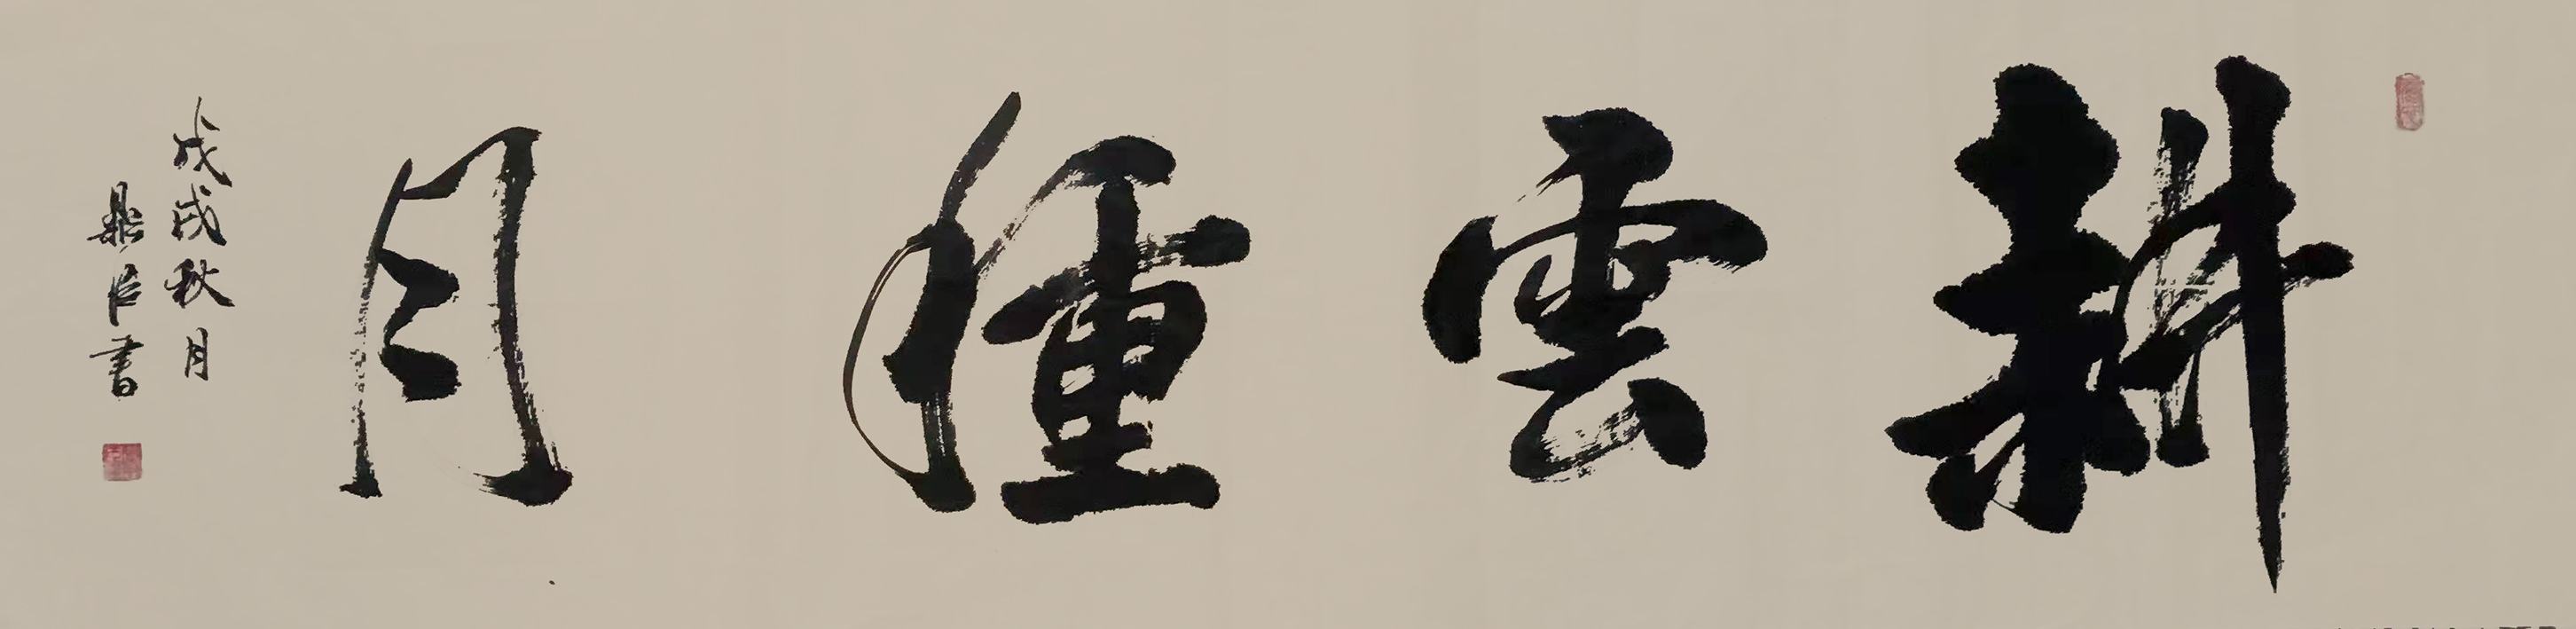 耕雲種月
戊戌秋月
鼎臣書